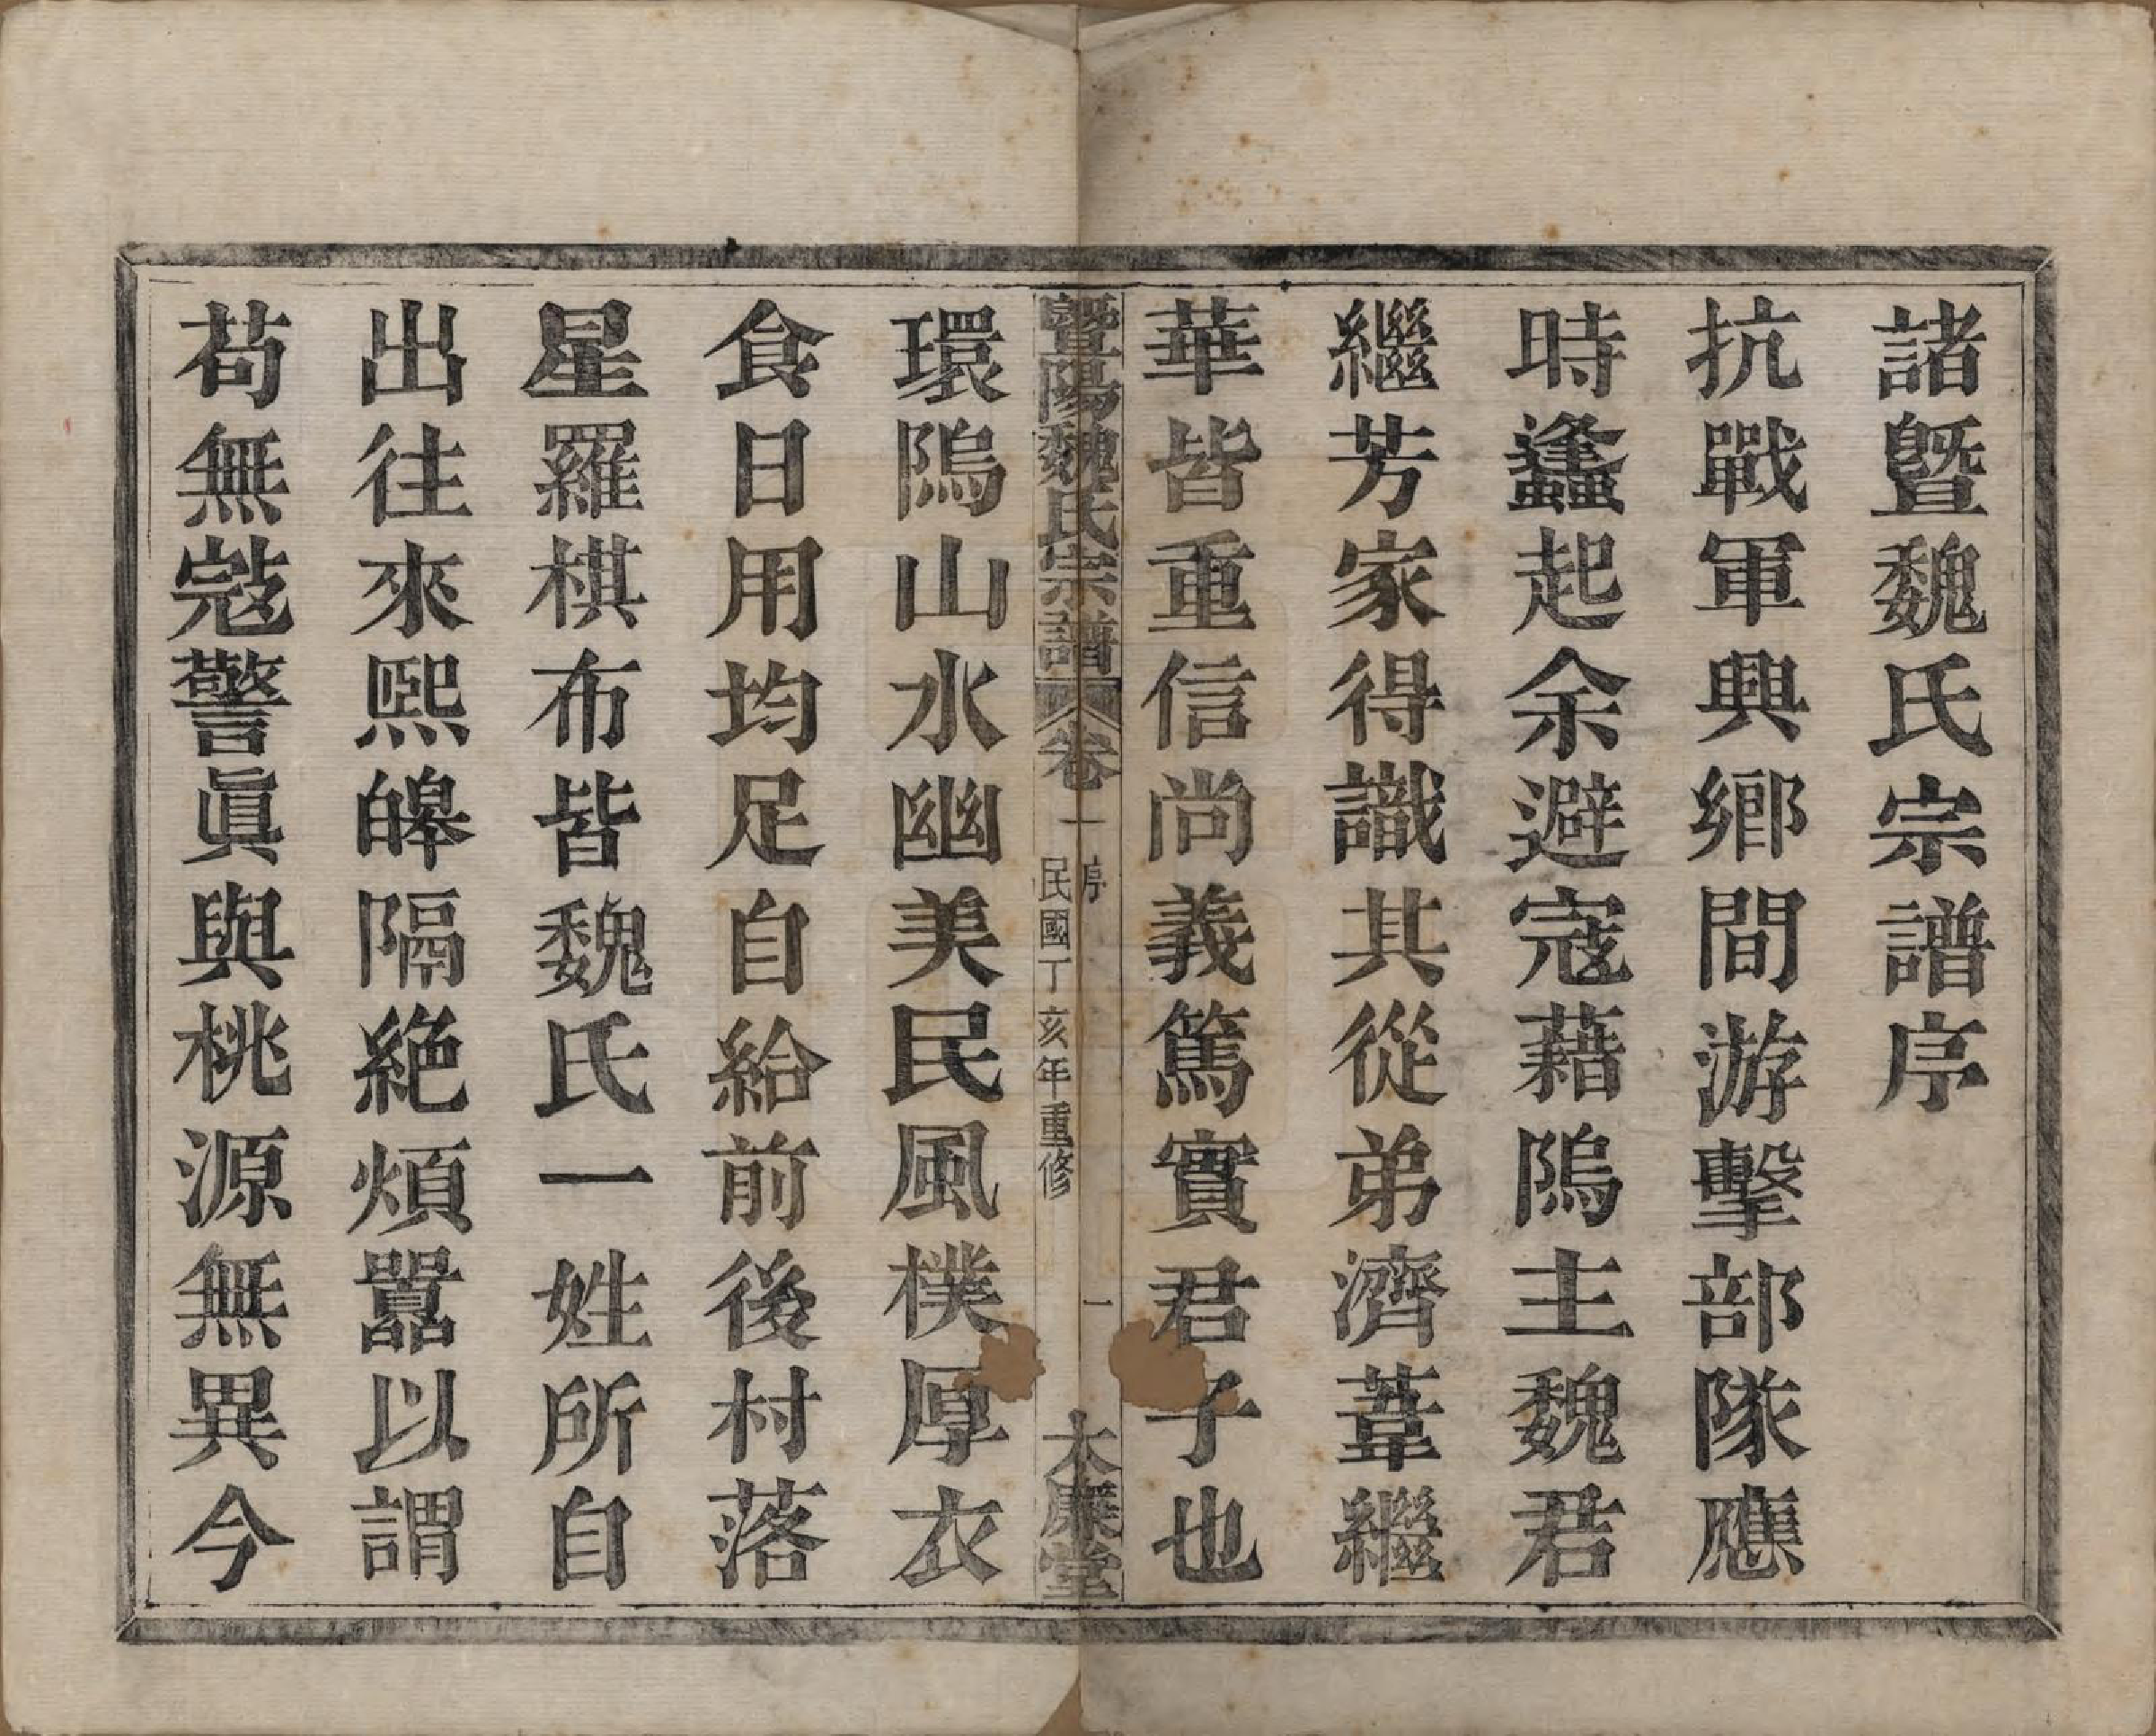 諸曁魏氏宗譜序
抗戰軍興鄉間游擊部隊應
時蠭起余避寇藉隖主魏君
繼芳家得識其從弟濟葦繼
華皆重信尚義篤實君子也
暨陽魏氏宗譜 卷一 序 民國丁亥年重修 一 大廉堂
環隖山水幽美民風樸厚衣
食日用均足自給前後村落
星羅棋布皆魏氏一姓所自
出往來熙皞隔絶煩囂以謂
苟無寇警眞與桃源無異今